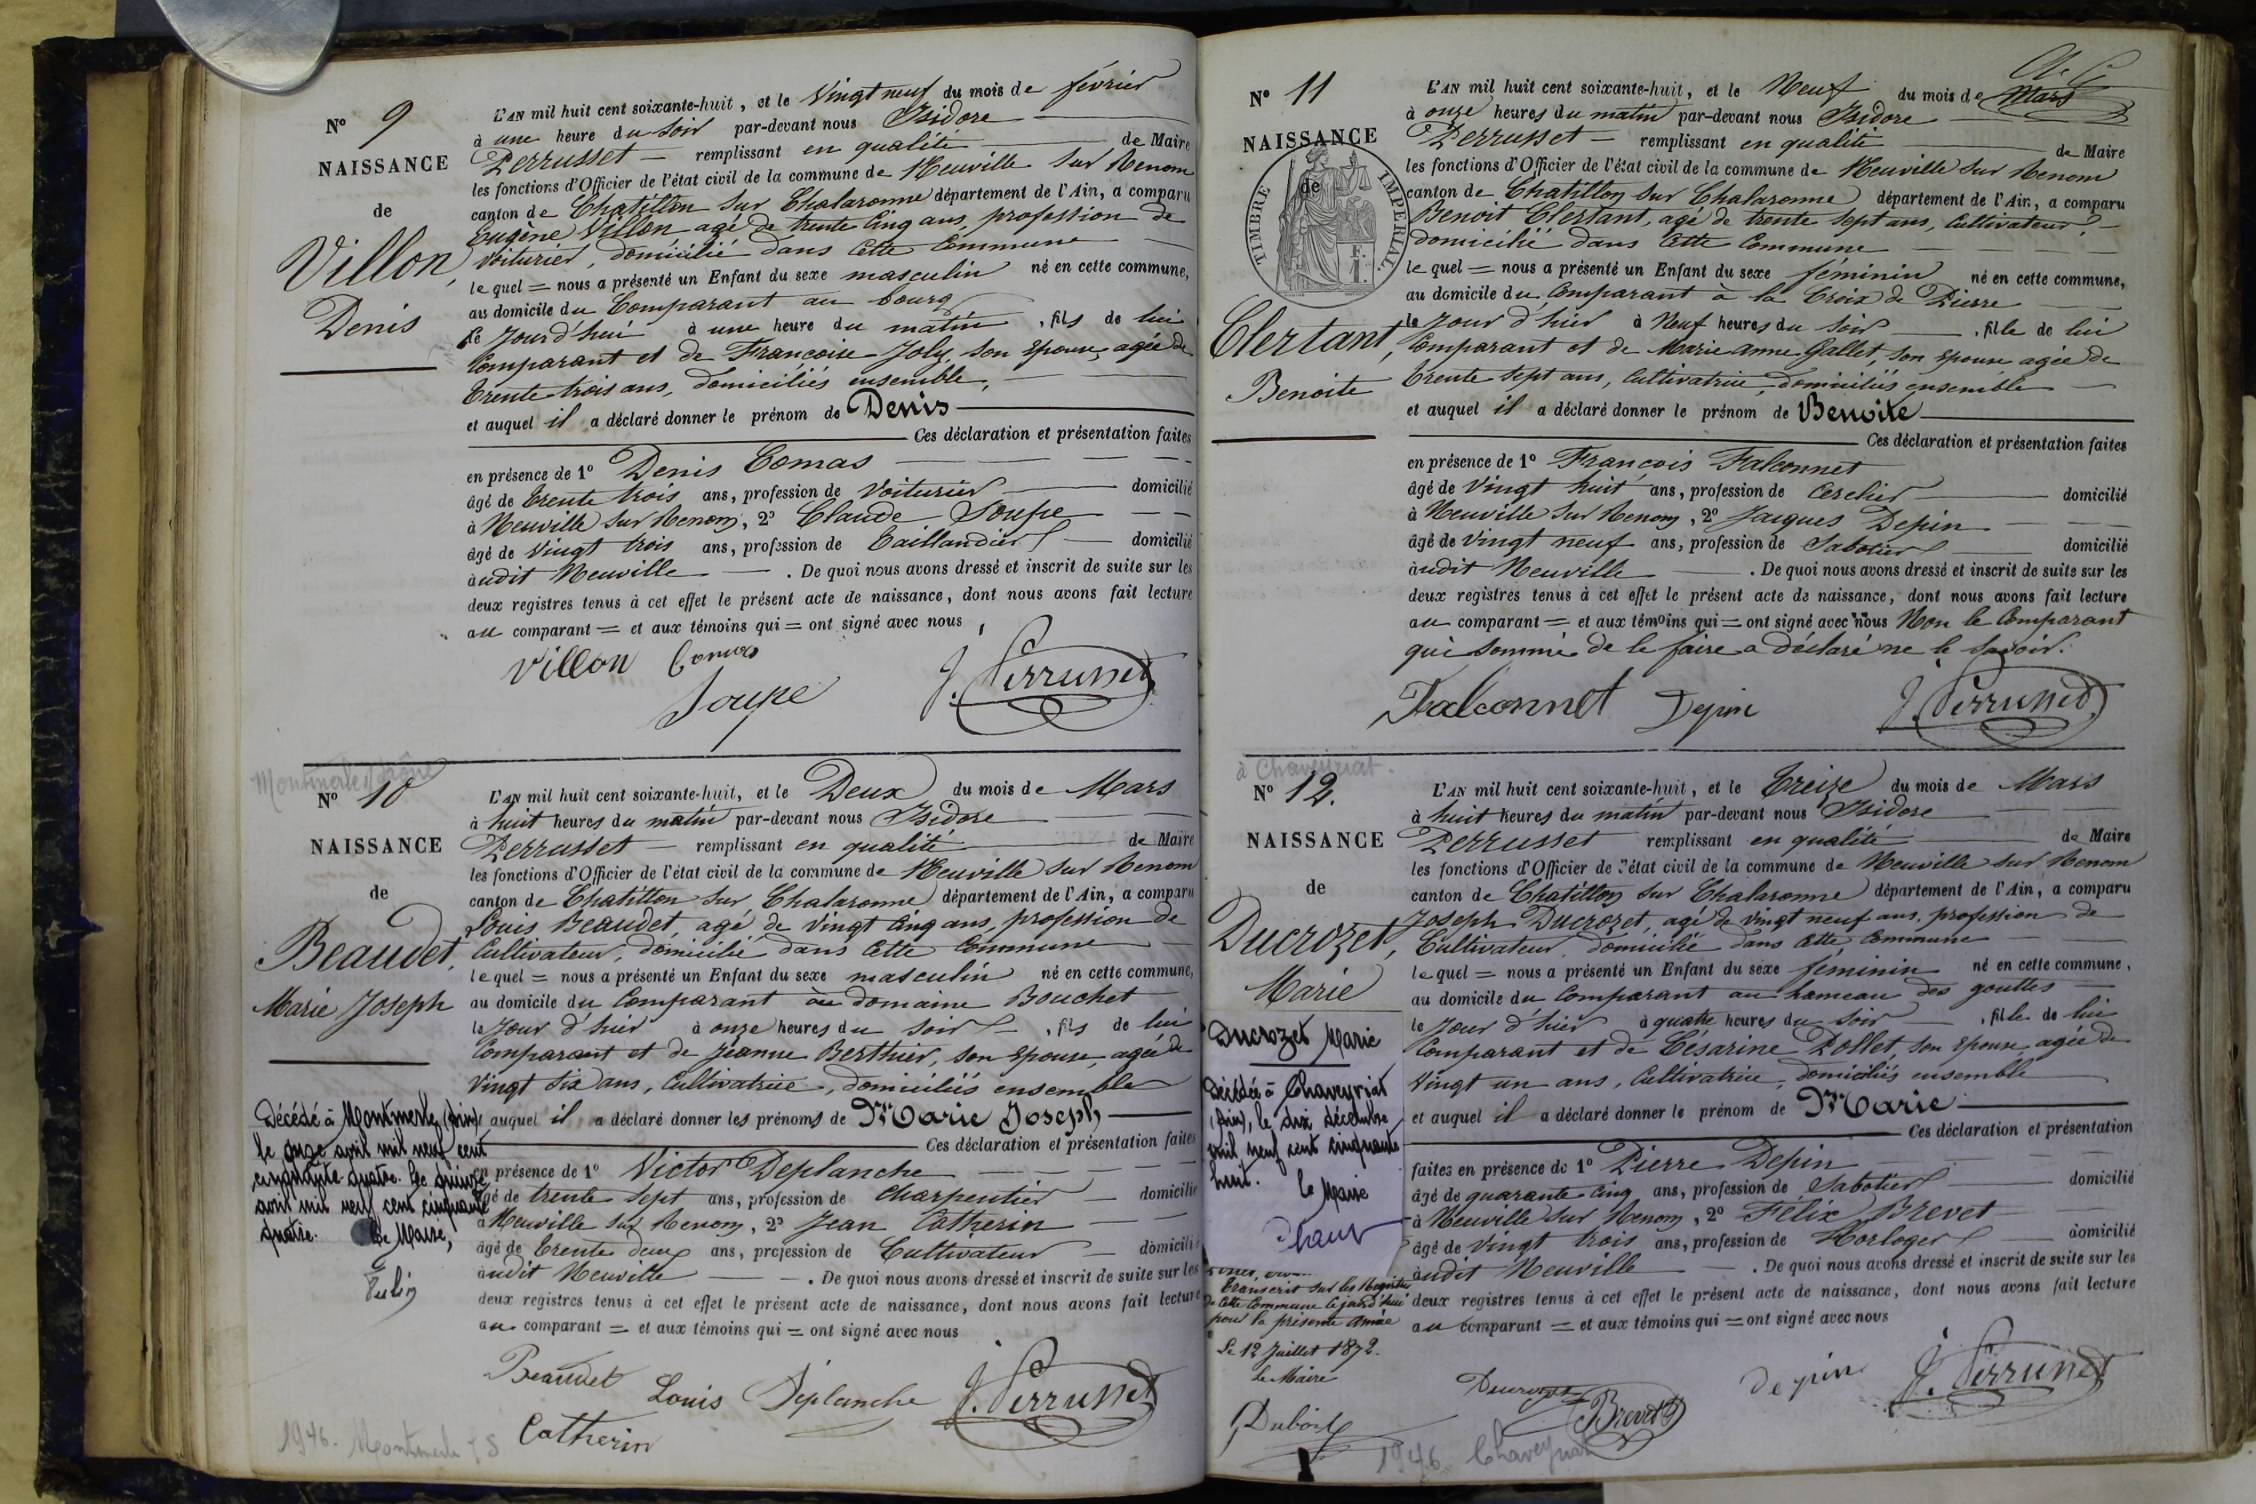 N° 9
NAISSANCE
de
Villon,
Denis
L'AN mil huit cent soixante-huit, et le Vingt neuf du mois de février
à une heure du soir par-devant nous Isidore
Perrusset — remplissant en qualité de Maire
les fonctions d'Officier de l'état civil de la commune de Neuville sur Renom
canton de Chatillon sur Chalaronne département de l'Ain, a comparu
Eugène Villon agé de trente Cinq ans, profession de
voiturier, domicilié dans cette Commune
le quel = nous a présenté un Enfant du sexe masculin né en cette commune,
au domicile du Comparant au bourg
le Jourd'hui à une heure du matin, fils de lui
Comparant et de Françoise Joly, son Epouse, agée de
trente trois ans, domiciliés ensemble,
et auquel il a déclaré donner le prénom de Denis
Ces déclaration et présentation faites
en présence de 1° Denis Comas
âgé de trente trois ans, profession de Voiturier domicilié
à Neuville sur Renom, 2° Claude Soupe
âgé de vingt trois ans, profession de Taillandier domicilié
àudit Neuville — . De quoi nous avons dressé et inscrit de suite sur les
deux registres tenus à cet effet le présent acte de naissance, dont nous avons fait lecture
au comparant = et aux témoins qui = ont signé avec nous
Villon Comas
Soupe J. Perrusset
Montmerle s/ Saône
N° 10
NAISSANCE
de
Beaudet,
Marie Joseph
L'AN mil huit cent soixante-huit, et le Deux du mois de Mars
à huit heures du matin par-devant nous Isidore
Perrusset — remplissant en qualité de Maire
les fonctions d'Officier de l'état civil de la commune de Neuville sur Renom
canton de Chatillon sur Chalaronne département de l'Ain, a comparu
Louis Beaudet, agé de vingt Cinq ans, profession de
Cultivateur, domicilié dans cette Commune
le quel = nous a présenté un Enfant du sexe masculin né en cette commune,
au domicile du Comparant au domaine Bouchet
le Jour d'hier à onze heures du soir, fils de lui
Comparant et de Jeanne Berthier, son Epouse, agée de
Vingt six ans, Cultivatrice, domiciliés ensemble
auquel il a déclaré donner les prénoms de Marie Joseph
Ces déclaration et présentation faites
en présence de 1° Victor Deplanche
âgé de trente sept ans, profession de Charpentier domicilié
à Neuville sur Renom, 2° Jean Catherin
âgé de trente deux ans, profession de Cultivateur domicilié
àudit Neuville — . De quoi nous avons dressé et inscrit de suite sur les
deux registres tenus à cet effet le présent acte de naissance, dont nous avons fait lecture
au comparant = et aux témoins qui = ont signé avec nous
Décédé à Montmerle (Ain)
le onze avril mil neuf cent
cinquante quatre. Le quinze
avril mil neuf cent cinquante
quatre. Le Maire,
Beaudet Louis Déplanche J. Perrusset
Catherin
1946. Montmerle s/ S
N° 11
NAISSANCE
de
TIMBRE IMPERIAL
Clertant,
Benoite
L'AN mil huit cent soixante-huit, et le Neuf du mois de Mars
à onze heures du matin par-devant nous Isidore
Perrusset — remplissant en qualité de Maire
les fonctions d'Officier de l'état civil de la commune de Neuville sur Renom
canton de Chatillon sur Chalaronne département de l'Ain, a comparu
Benoit Clertant, agé de trente sept ans, Cultivateur,
domicilié dans cette Commune
le quel = nous a présenté un Enfant du sexe féminin né en cette commune,
au domicile du Comparant à la Croix de Pierre
le Jour d'hier à Neuf heures du soir, fille de lui
Comparant et de Marie Anne Gallet, son Epouse agée de
trente sept ans, Cultivatrice, domiciliés ensemble
et auquel il a déclaré donner le prénom de Benoite
Ces déclaration et présentation faites
en présence de 1° François Falconnet
âgé de vingt huit ans, profession de Cerclier domicilié
à Neuville sur Renom, 2° Jacques Depin
âgé de vingt neuf ans, profession de Sabotier domicilié
àudit Neuville — . De quoi nous avons dressé et inscrit de suite sur les
deux registres tenus à cet effet le présent acte de naissance, dont nous avons fait lecture
au comparant = et aux témoins qui = ont signé avec nous Non le Comparant
qui sommé de le faire a déclaré ne le savoir.
Falconnet Depin J. Perrusset
à Chaveyriat.
N° 12.
NAISSANCE
de
Ducrozet,
Marie
L'AN mil huit cent soixante-huit, et le Treize du mois de Mars
à huit heures du matin par-devant nous Isidore
Perrusset remplissant en qualité de Maire
les fonctions d'Officier de l'état civil de la commune de Neuville sur Renom
canton de Chatillon sur Chalaronne département de l'Ain, a comparu
Joseph Ducrozet, agé de vingt neuf ans, profession de
Cultivateur, domicilié dans cette Commune
le quel = nous a présenté un Enfant du sexe féminin né en cette commune,
au domicile du Comparant au hameau des gouttes
le Jour d'hier à quatre heures du soir, fille de lui
Comparant et de Césarine Pollet, son Epouse, agée de
Vingt un ans, Cultivatrice, domiciliés ensemble
et auquel il a déclaré donner le prénom de Marie
Ces déclaration et présentation
faites en présence de 1° Pierre Depin
âgé de quarante cinq ans, profession de Sabotier domicilié
à Neuville sur Renom, 2° Félix Brevet
âgé de vingt trois ans, profession de Horloger domicilié
àudit Neuville — . De quoi nous avons dressé et inscrit de suite sur les
deux registres tenus à cet effet le présent acte de naissance, dont nous avons fait lecture
au comparant = et aux témoins qui = ont signé avec nous
Ducrozet Marie
Décédée à Chaveyriat
(Ain), le dix décembre
mil neuf cent cinquante
huit. Le Maire
Transcrit sur les Registres
de cette Commune le jourd'hui
pour la présente année
Le 12 Juillet 1872.
Le Maire
Dubois
Ducrozet Brevet Depin J. Perrusset
1946 Chaveyriat